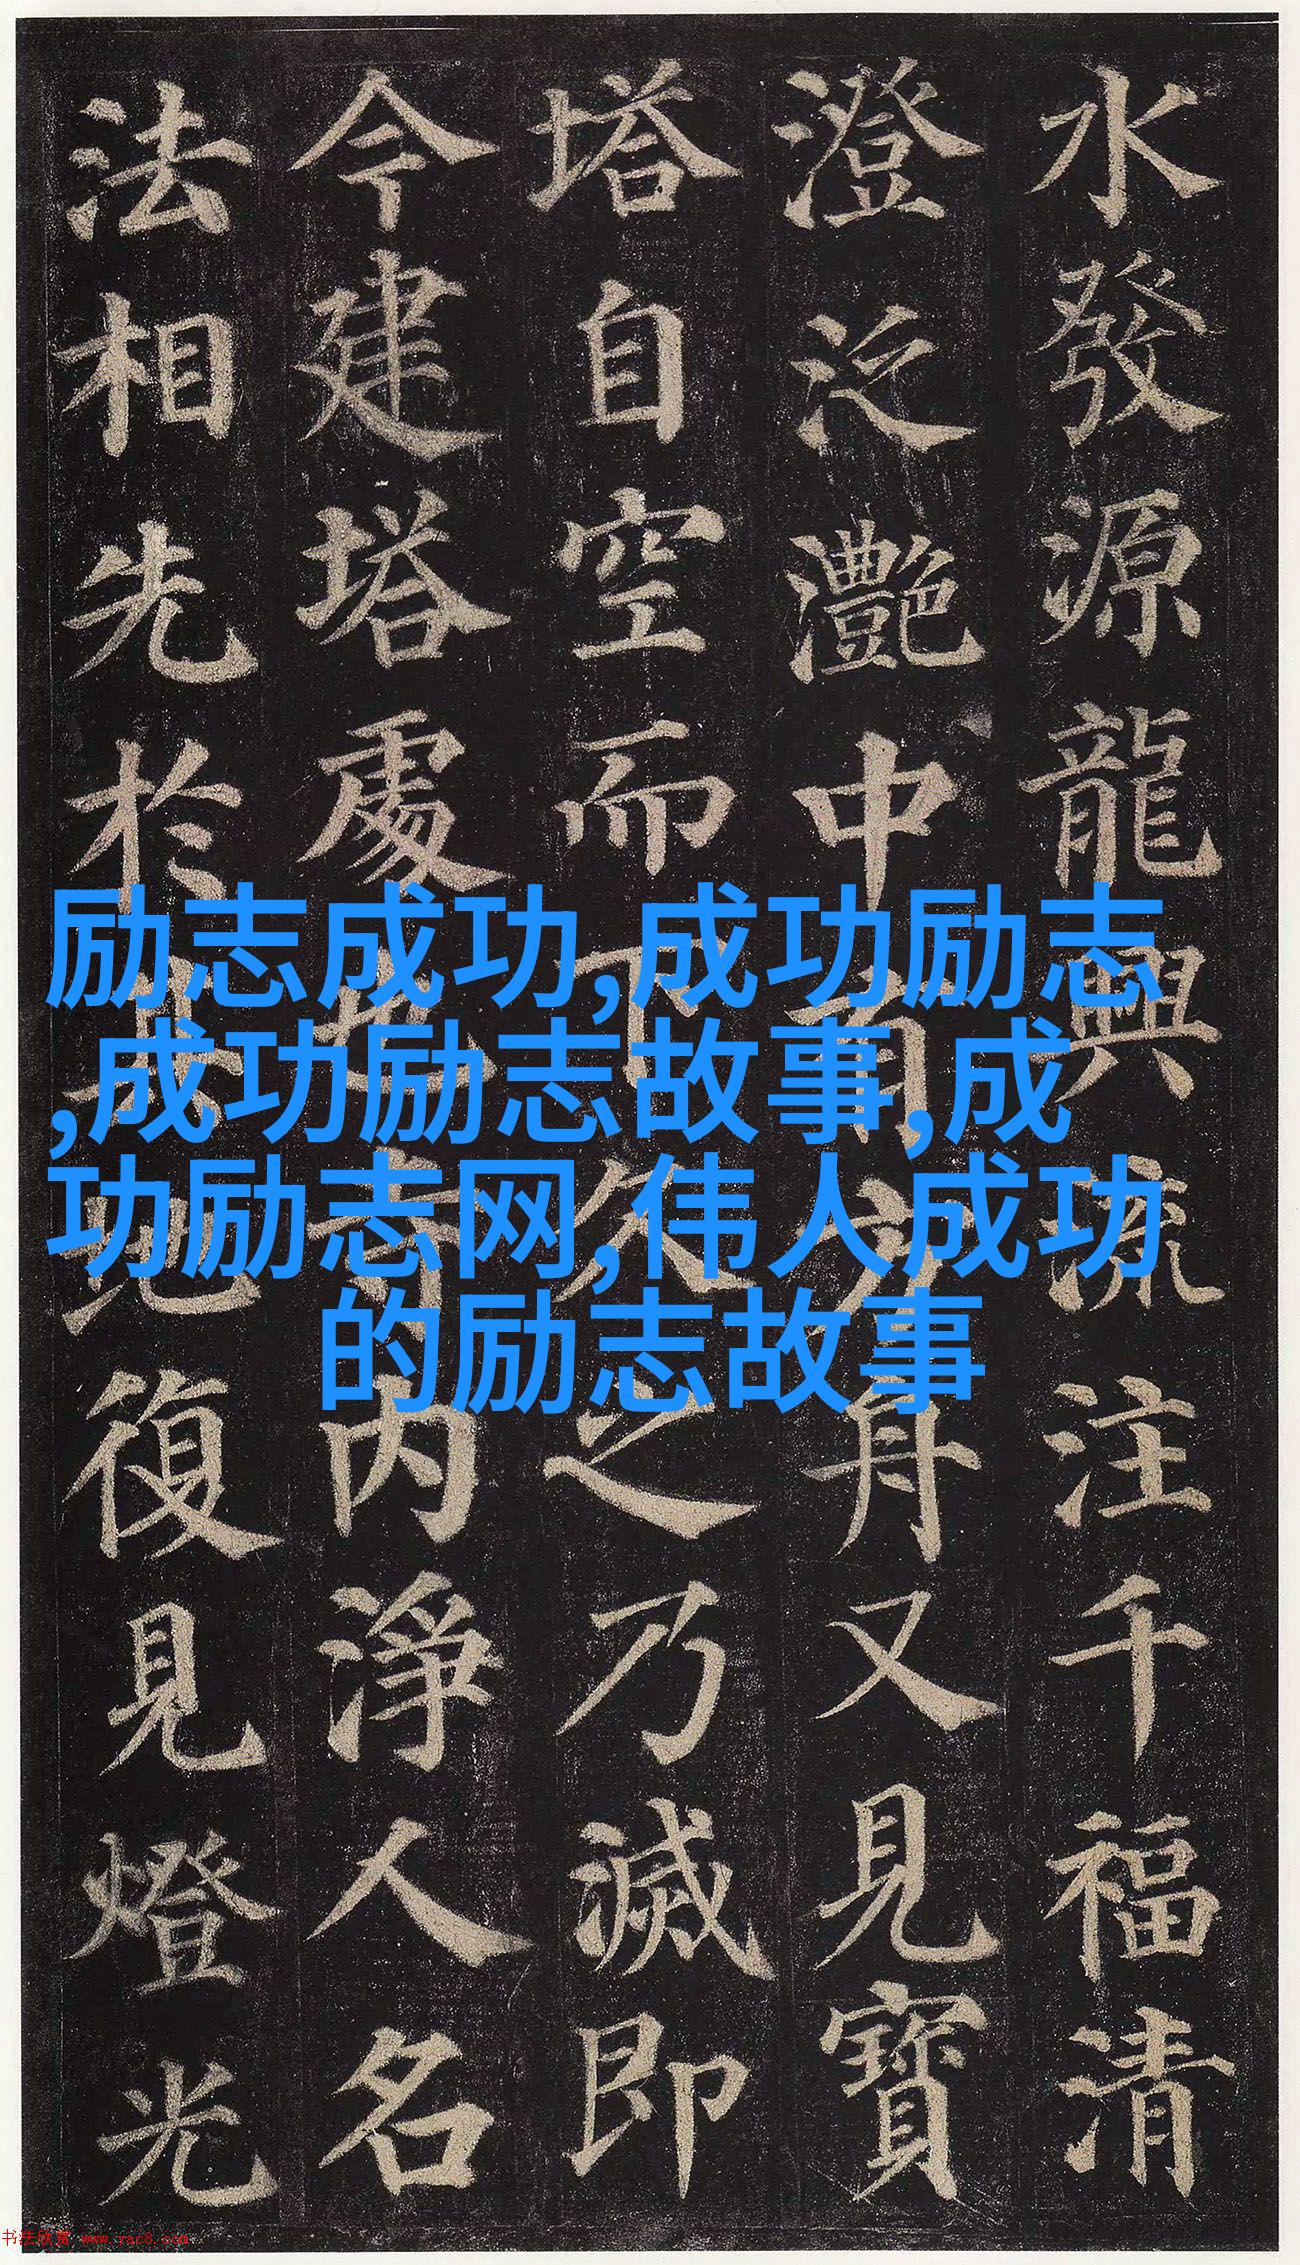 水發源龍興流注千福清
澄泛灩中有方舟又見寶
塔自空而下久之乃滅即
今建塔處也寺內淨人名
法相先於其地復見燈光
励志成功,成功励志
,成功励志故事,成
功励志网,伟人成功
的励志故事
书法欣赏 www.yac8.com